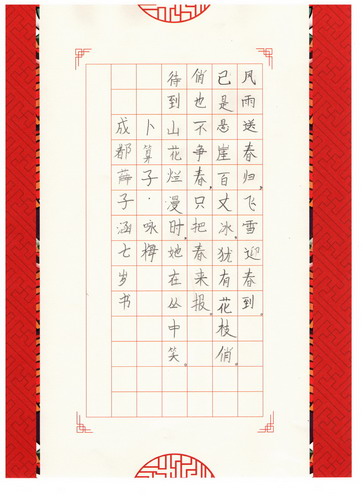 风雨送春归,飞雪迎春到。
已是悬崖百丈冰,犹有花枝俏。
俏也不争春,只把春来报。
待到山花烂漫时,她在丛中笑。
卜算子·咏梅
成都薛子涵七岁书